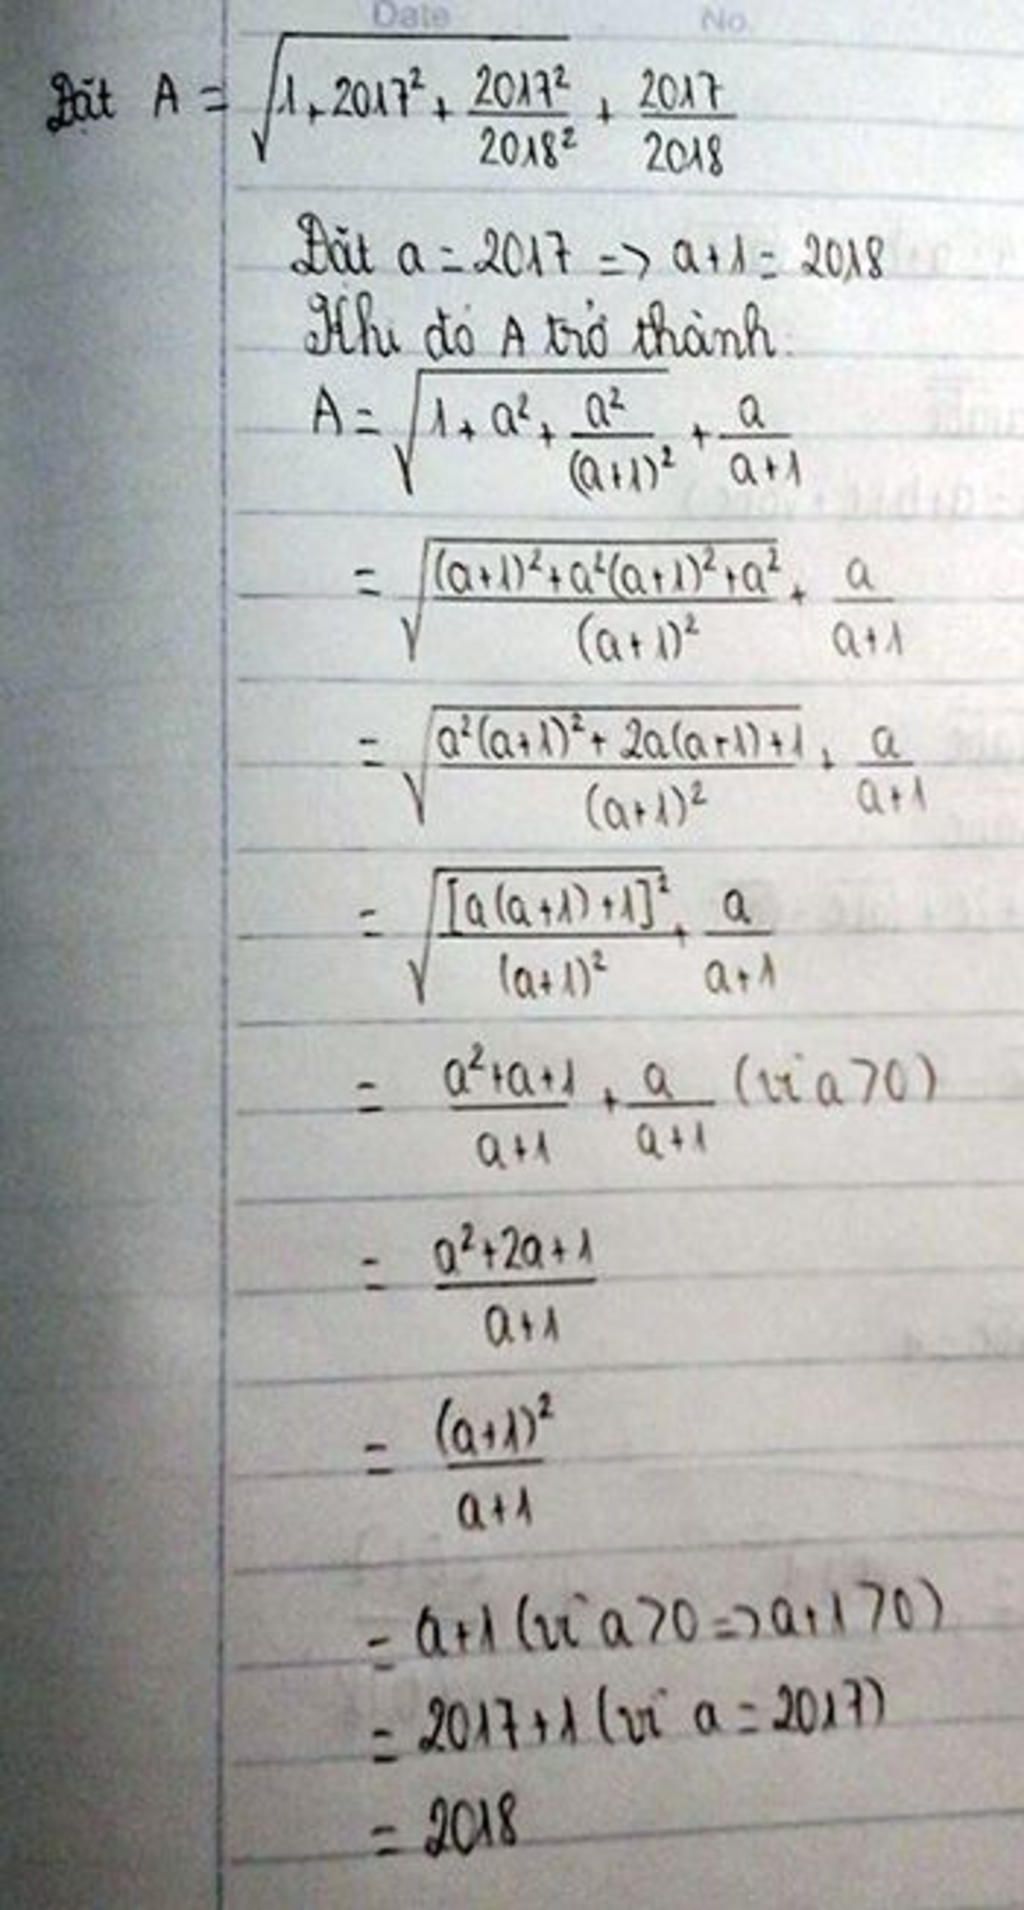 Date No
Đặt A = √(1 + 2017² + 2017²/2018²) + 2017/2018
Đặt a = 2017 => a+1 = 2018
Khi đó A trở thành:
A = √(1 + a² + a²/(a+1)²) + a/(a+1)
= √(((a+1)² + a²(a+1)² + a²)/(a+1)²) + a/(a+1)
= √((a²(a+1)² + 2a(a+1) + 1)/(a+1)²) + a/(a+1)
= √([a(a+1)+1]²/(a+1)²) + a/(a+1)
= (a²+a+1)/(a+1) + a/(a+1) (vì a>0)
= (a²+2a+1)/(a+1)
= (a+1)²/(a+1)
= a+1 (vì a>0 => a+1>0)
= 2017+1 (vì a = 2017)
= 2018